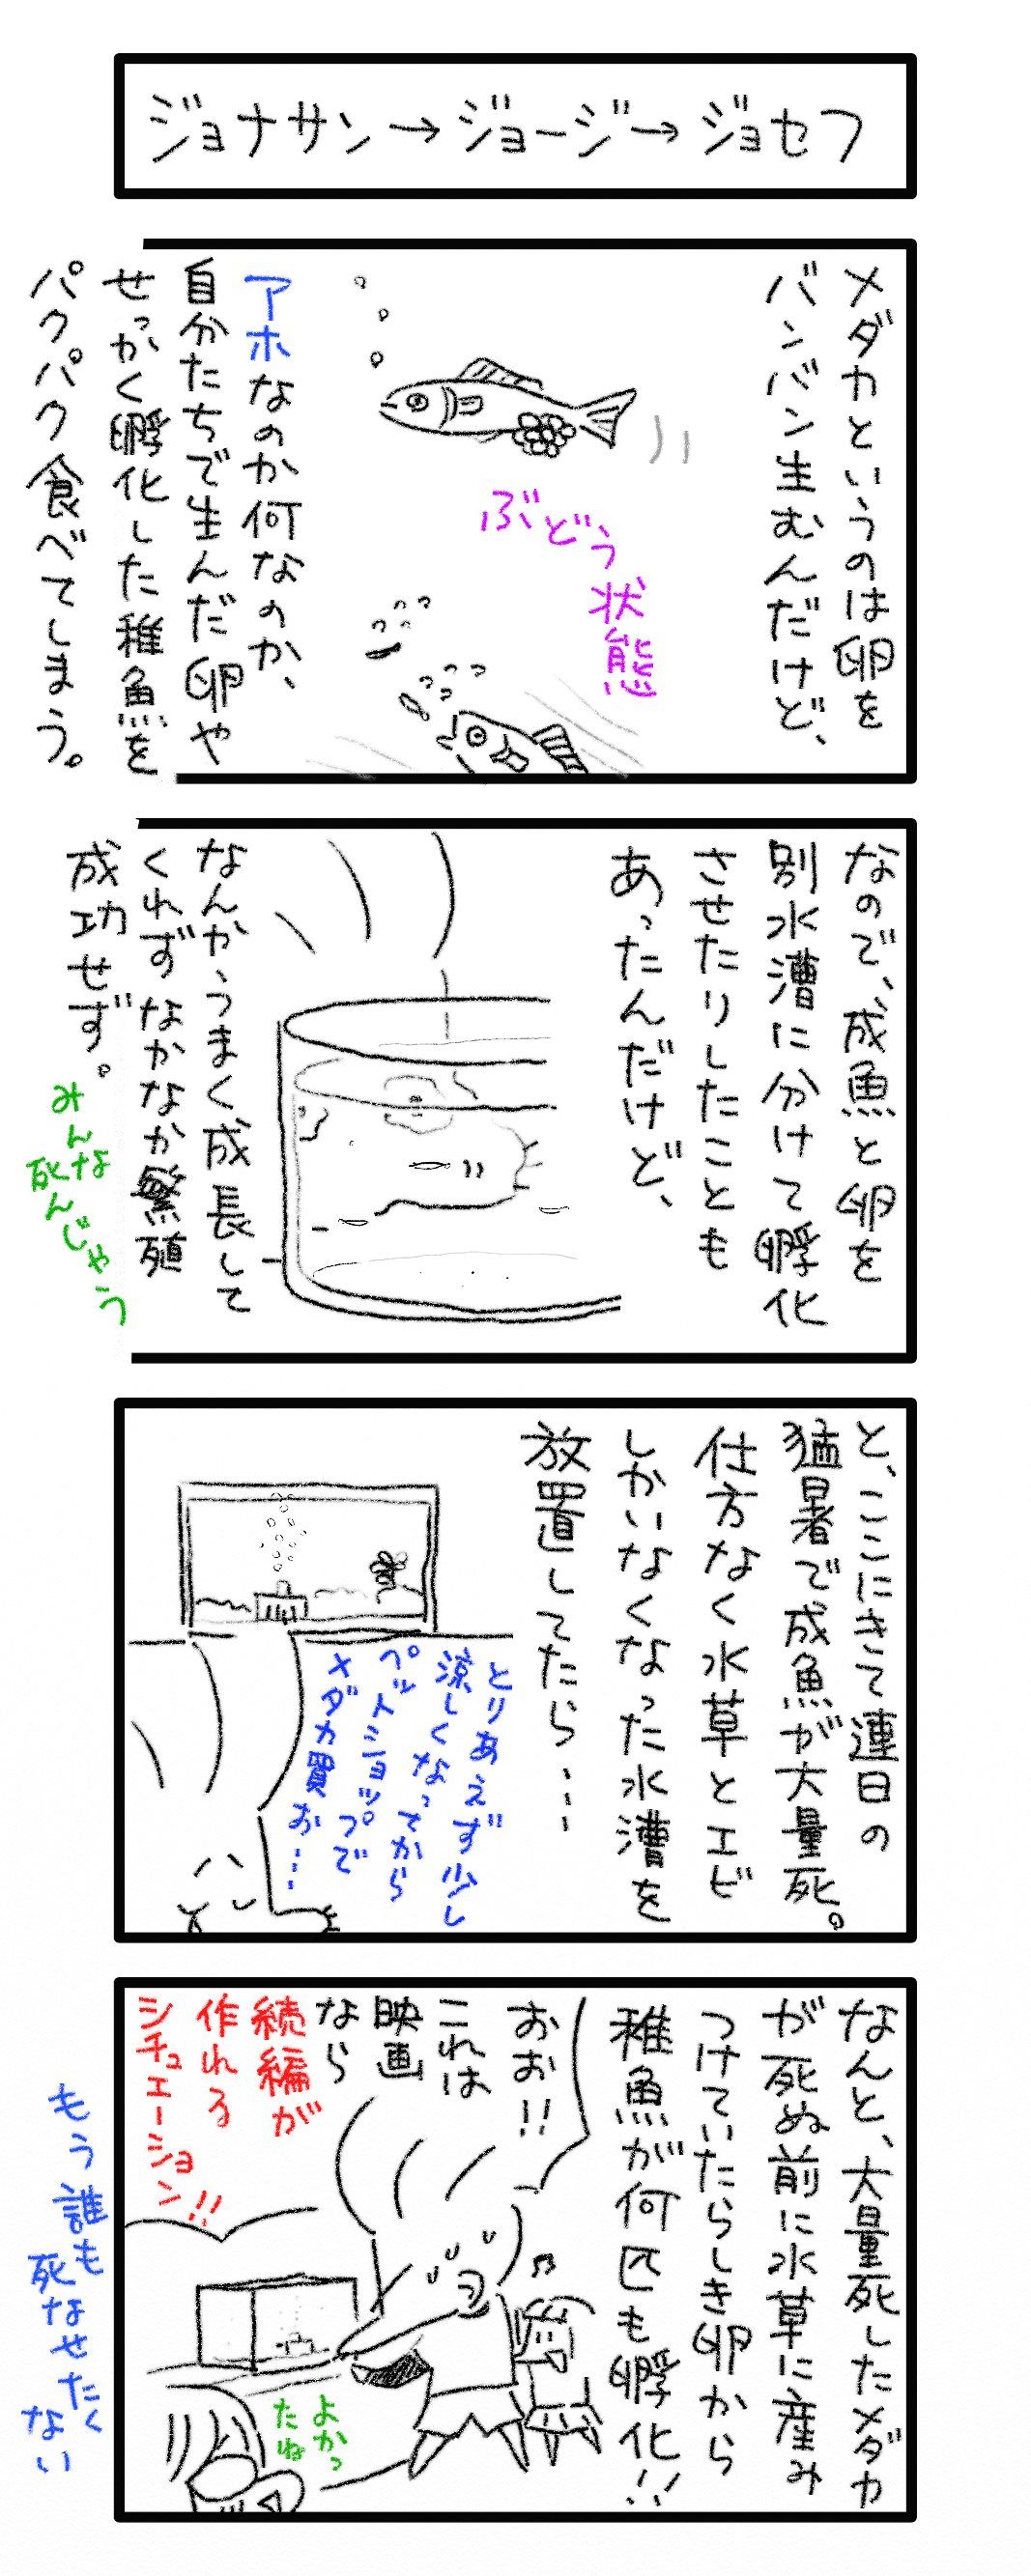 ジョナサン→ジョージ→ジョセフ
メダカというのは卵を
バンバン生むんだけど、
ぶどう状態
アホなのか何なのか、
自分たちで生んだ卵や
せっかく孵化した稚魚を
パクパク食べてしまう。
なので、成魚と卵を
別水漕に分けて孵化
させたりしたことも
あったんだけど、
なんか、うまく成長して
くれず なかなか繁殖
成功せず。
みんな
死んじゃう
と、ここにきて連日の
猛暑で成魚が大量死。
仕方なく水草とエビ
しかいなくなった水漕を
放置してたら・・・
とりあえず少し
涼しくなってから
ペットショップで
メダカ買お…
なんと、大量死したメダカ
が死ぬ前に水草に産み
つけていたらしき卵から
稚魚が何匹も孵化!!
おお!!
これは
映画
なら
続編が
作れる
シチュエーション!!
よかっ
たね
もう誰も
死なせたく
ない